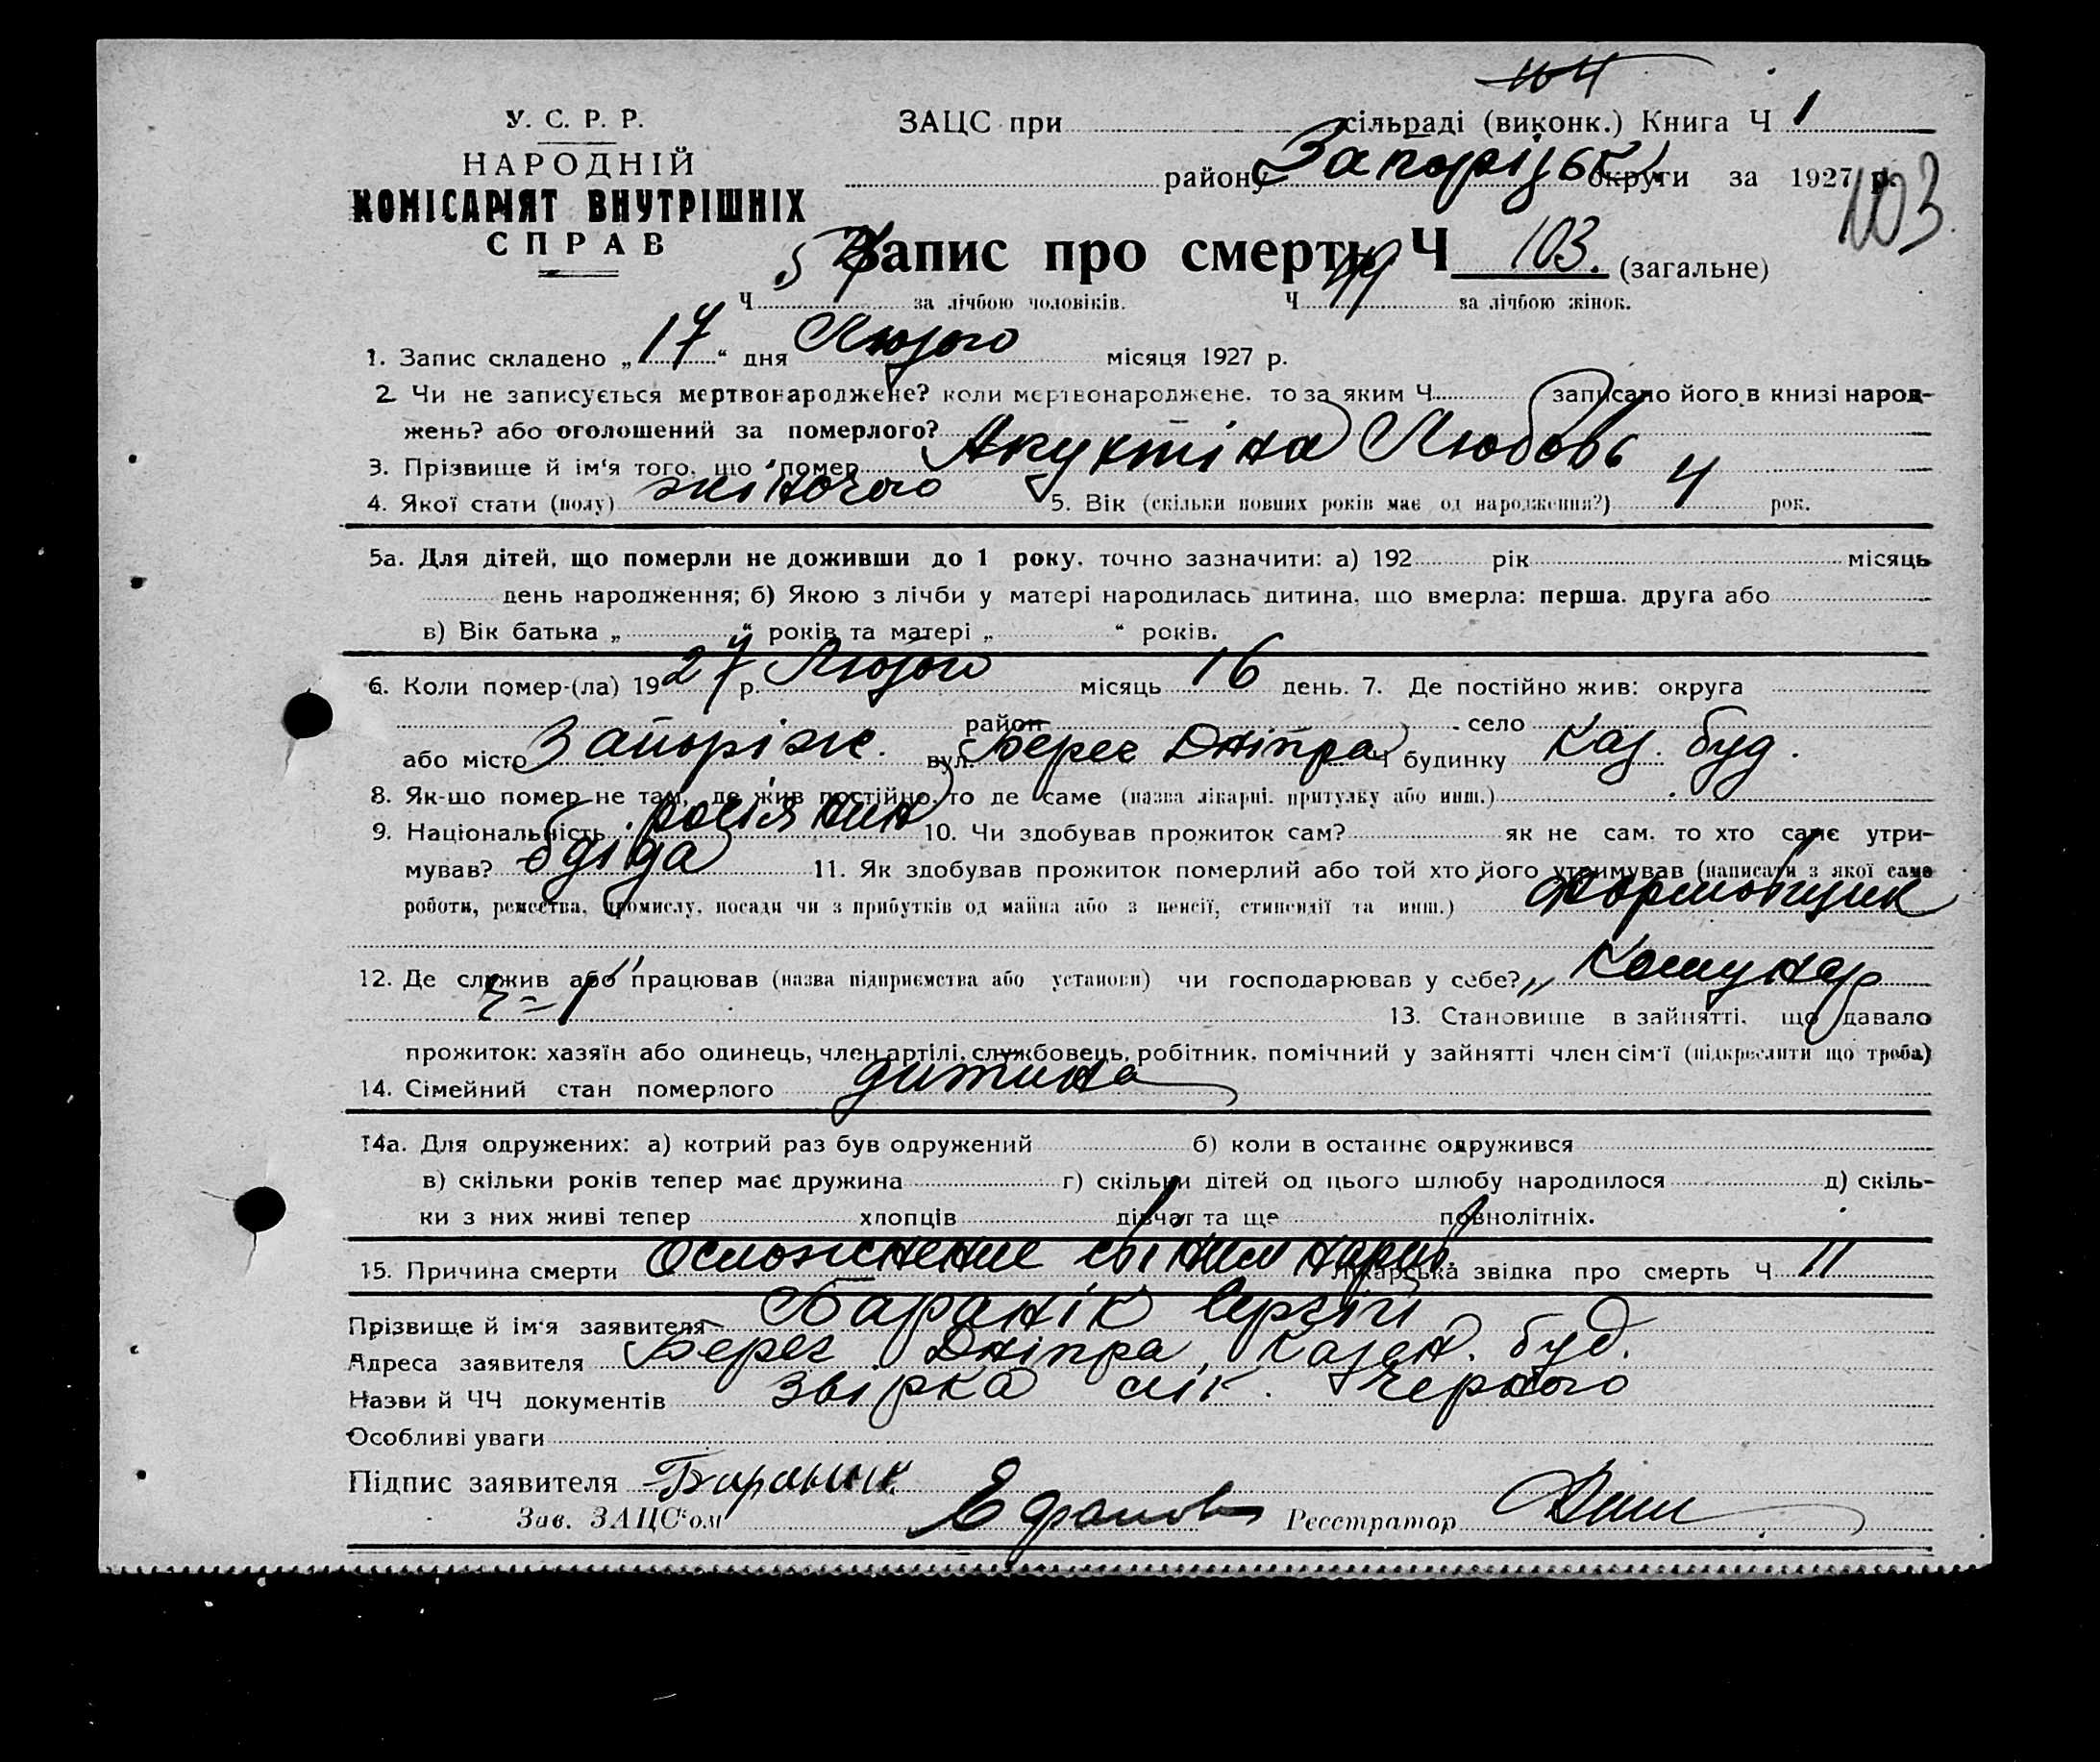 104
У. С. Р. Р.
НАРОДНІЙ
КОМІСАРІЯТ ВНУТРІШНІХ
СПРАВ
ЗАЦС при сільраді (виконк.) Книга Ч 1
району Запорізьк. округи за 1927 р.
103
Запис про смерть Ч 103. (загальне)
Ч 54 за лічбою чоловіків. Ч 49 за лічбою жінок.
1. Запис складено „17“ дня Лютого місяця 1927 р.
2. Чи не записується мертвонароджене? коли мертвонароджене, то за яким Ч записано його в книзі народ-
жень? або оголошений за померлого?
3. Прізвище й ім'я того, що помер Любовь
4. Якої стати (полу) жіночого 5. Вік (скільки повних років має од народження?) 4 рок.
5а. Для дітей, що померли не доживши до 1 року, точно зазначити: а) 192 рік місяць
день народження; б) Якою з лічби у матері народилась дитина, що вмерла: перша, друга або
в) Вік батька „ “ років та матері „ “ років.
6. Коли помер-(ла) 1927 р. Лютого місяць 16 день. 7. Де постійно жив: округа
район село
або місто Запоріж. вул. Берег Дніпра Ч будинку Каз. буд.
8. Як-що помер не там, де жив постійно, то де саме (назва лікарні, притулку або инш.)
9. Національність росіянин 10. Чи здобував прожиток сам? як не сам, то хто саме утри-
мував? дідa 11. Як здобував прожиток померлий або той хто його утримував (написати з якої саме
роботи, ремества, промислу, посади чи з прибутків од майна або з пенсії, стипендії та инш.) Формовщик
12. Де служив або працював (назва підприємства або установи) чи господарював у себе? „Комунар
13. Становище в зайнятті, що давало
прожиток: хазяїн або одинець, член артілі, службовець, робітник, помічний у зайнятті член сім'ї (підкреслити що треба)
14. Сімейний стан померлого дитина
14а. Для одружених: а) котрий раз був одружений б) коли в останнє одружився
в) скільки років тепер має дружина г) скільки дітей од цього шлюбу народилося д) скіль-
ки з них живі тепер хлопців дівчат та ще повнолітніх.
15. Причина смерти Осложнение Лікарська звідка про смерть Ч 11
Прізвище й ім'я заявителя Баранік Сергій
Адреса заявителя Берег Дніпра, Казен. буд.
Назви й ЧЧ документів Звірка лік. Черного
Особливі уваги
Підпис заявителя Бараник
Зав. ЗАЦС'ом Реєстратор